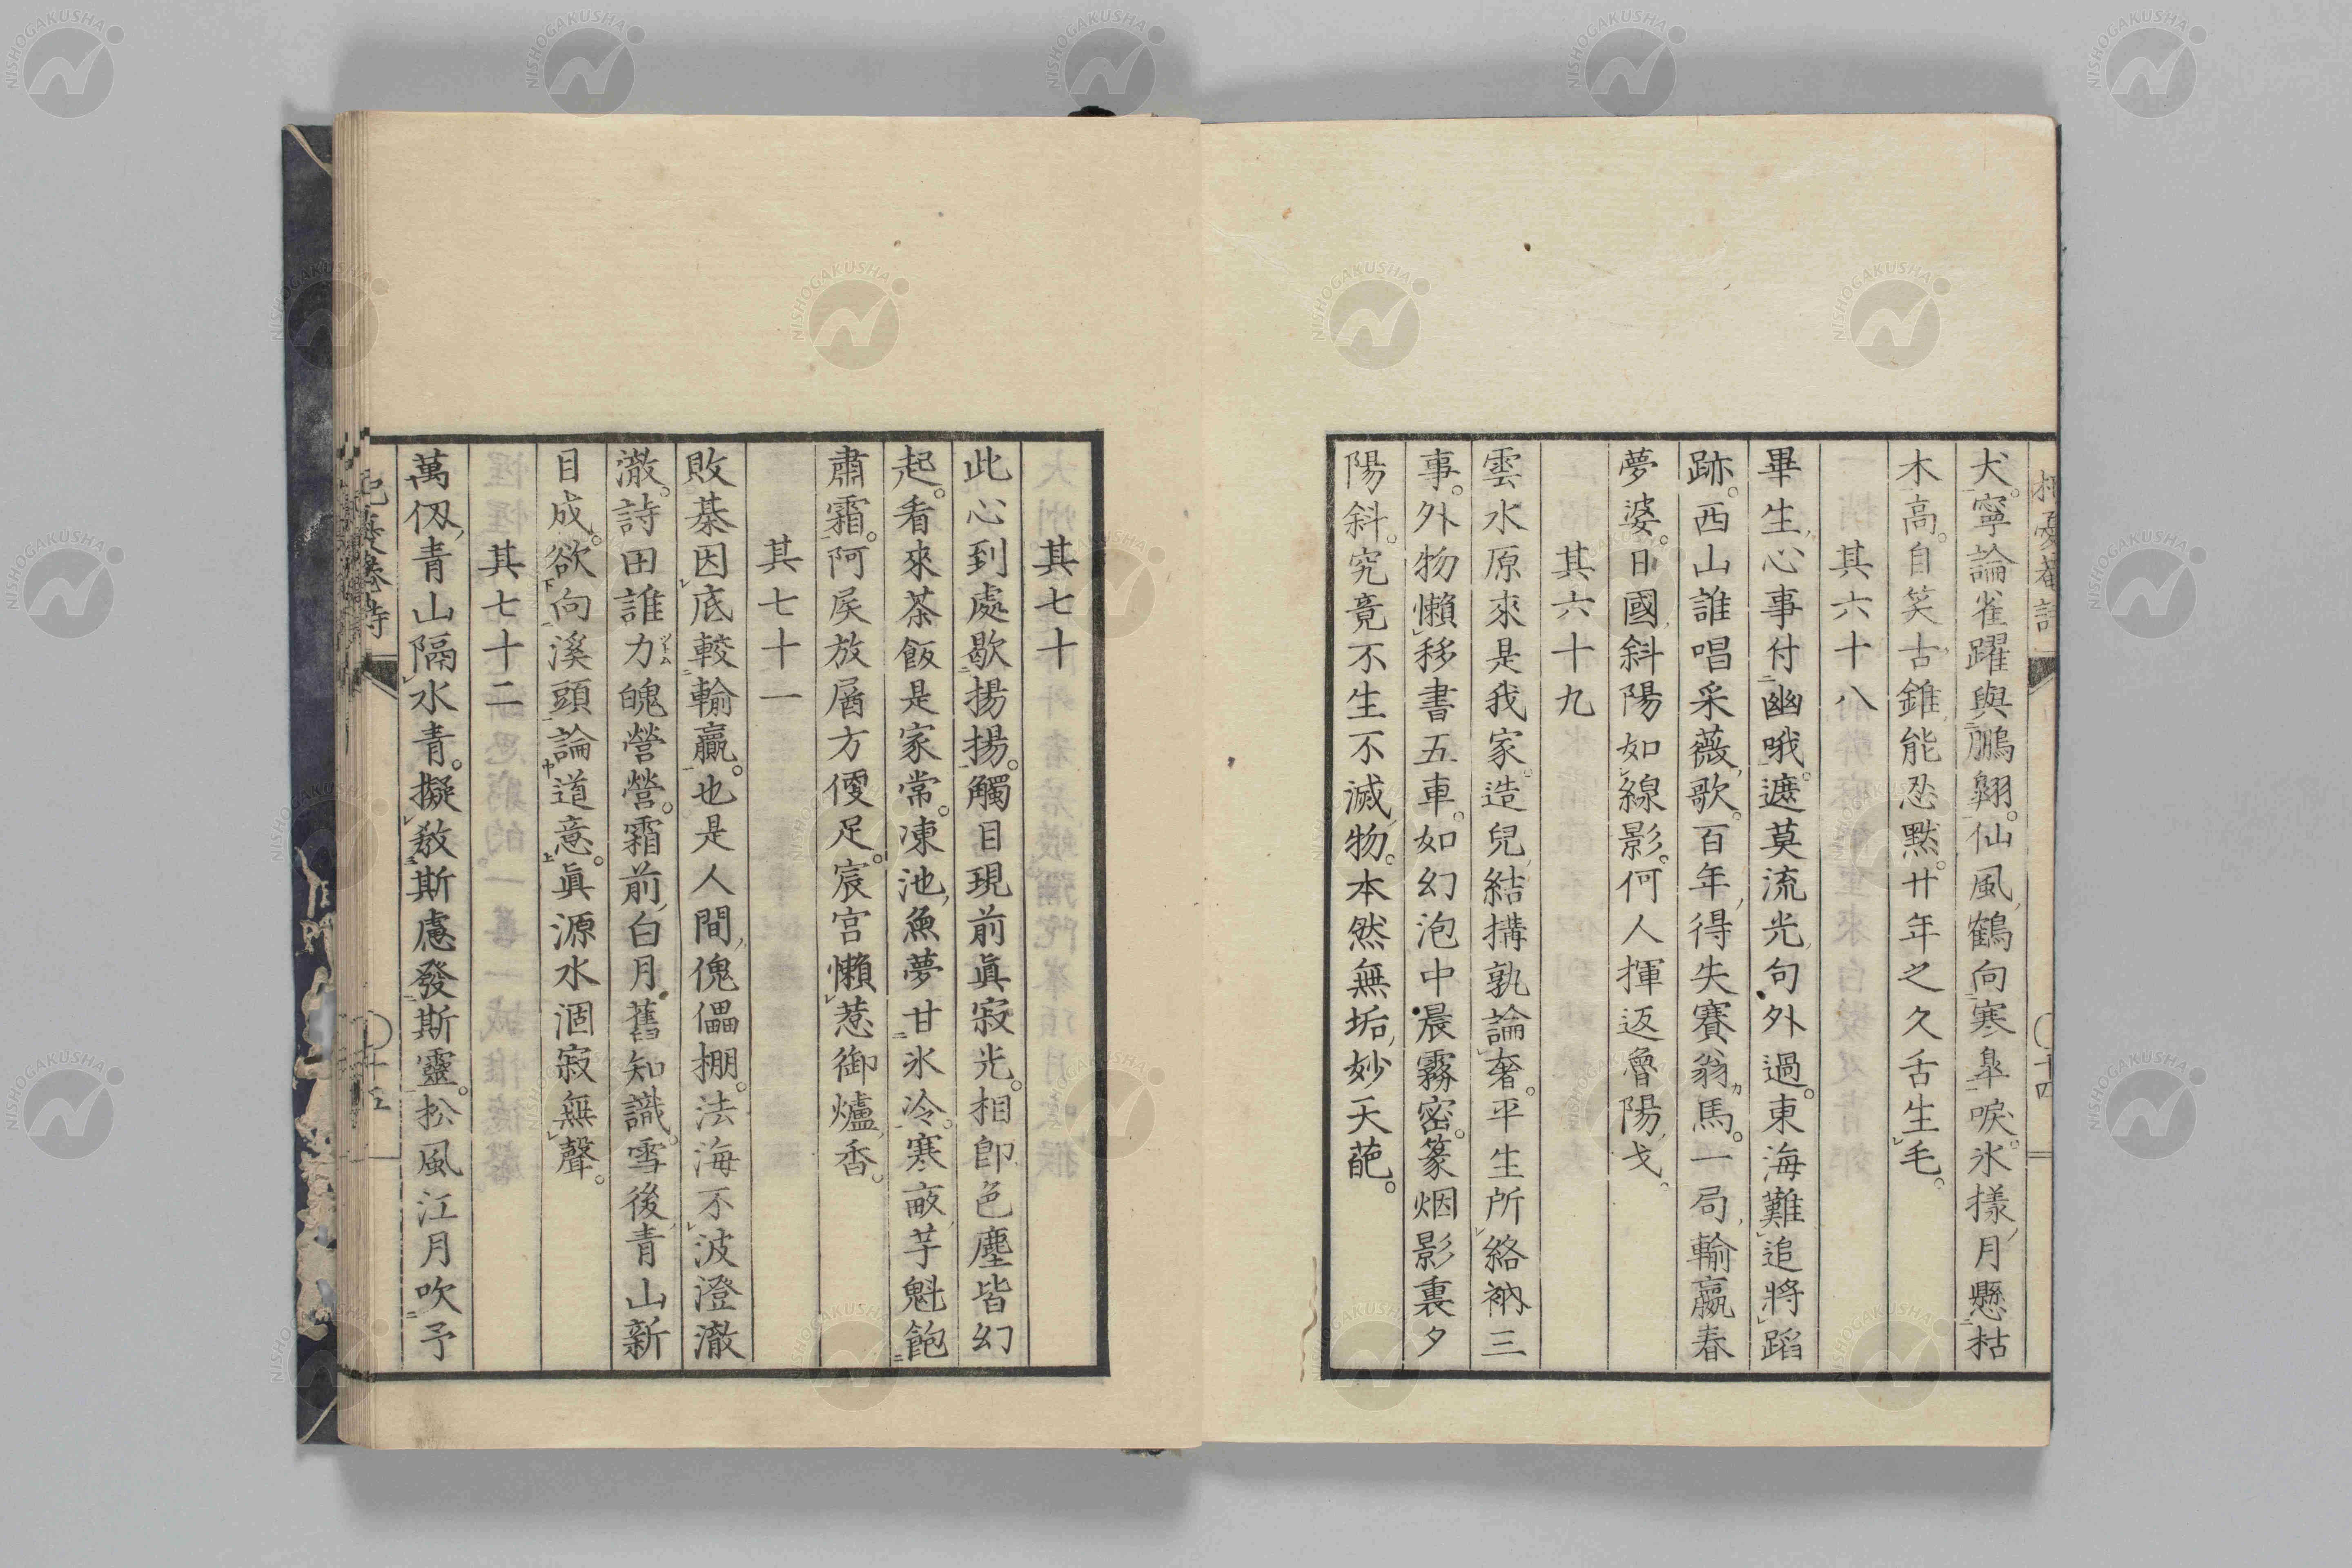 犬。寧論雀躍與鵬翱。仙風鶴向寒皐唳。氷樣月懸枯
木高。自笑古錐能忍默。廿年之久舌生毛。
其六十八
畢生心事付幽哦。遮莫流光句外過。東海難追將蹈
跡。西山誰唱采薇歌。百年得失賽翁馬。一局輸贏春
夢婆。日國斜陽如線影。何人揮返魯陽戈。
其六十九
雲水原來是我家。造兒結搆孰論奢。平生所絡衲三
事。外物懶移書五車。如幻泡中晨霧密。篆烟影裏夕
陽斜。究竟不生不滅物。本然無垢妙天葩。
其七十
此心到處歇揚揚。觸目現前眞寂光。相卽色塵皆幻
起。看來茶飯是家常。凍池魚夢甘氷冷。寒畝芋魁飽
肅霜。阿屎放屠方便足。宸宮懶惹御爐香。
其七十一
敗棊因底較輸贏。也是人間傀儡棚。法海不波澄澈
澈。詩田誰力醜營營。霜前白月舊知識。雪後青山新
目成。欲向溪頭論道意。眞源水涸寂無聲。
其七十二
萬仭青山隔水青。擬敎斯慮發斯靈。松風江月吹予
十四
十五
NISHOGAKUSHA